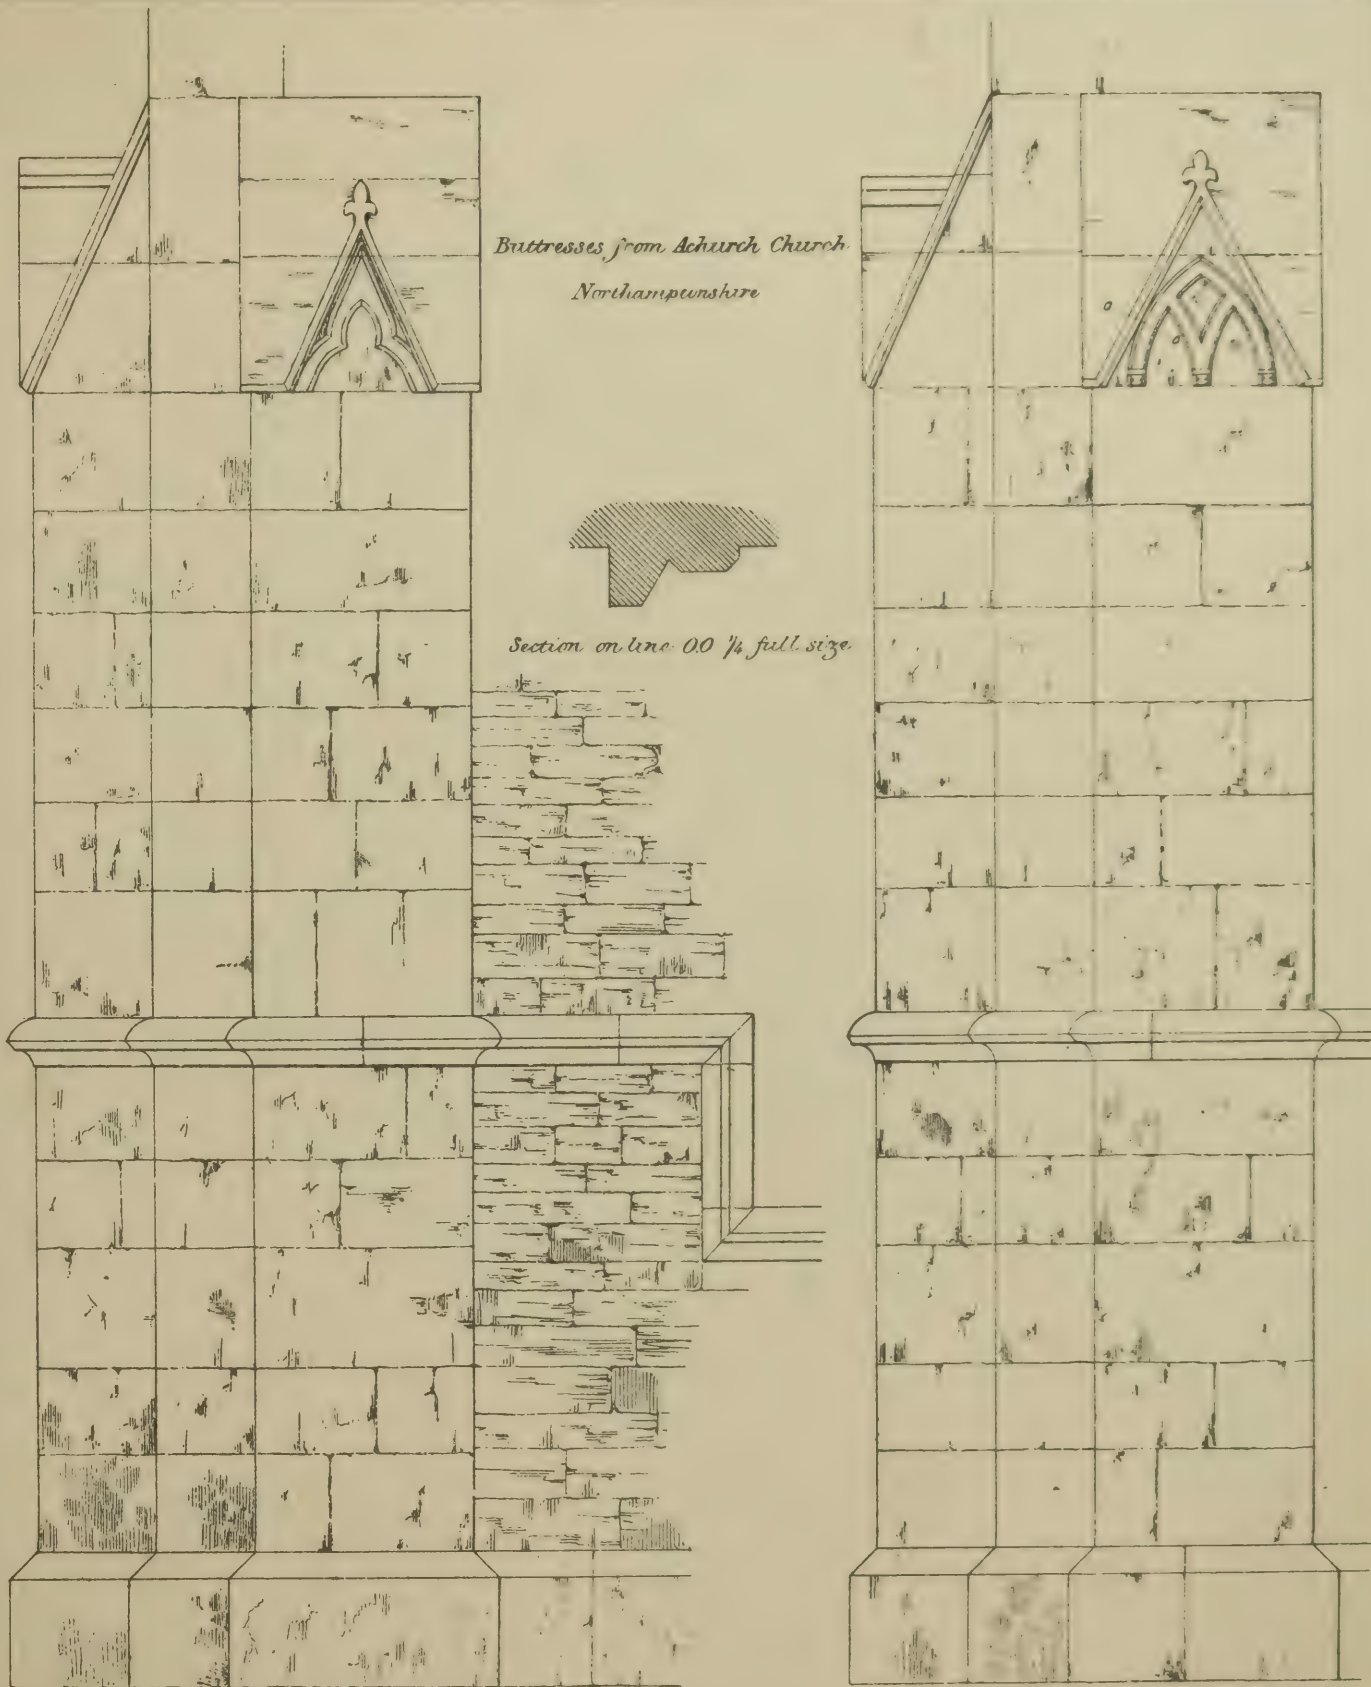 Buttresses from Achurch Church
Northamptonshire
Section on line 00 1/4 full size
o
o